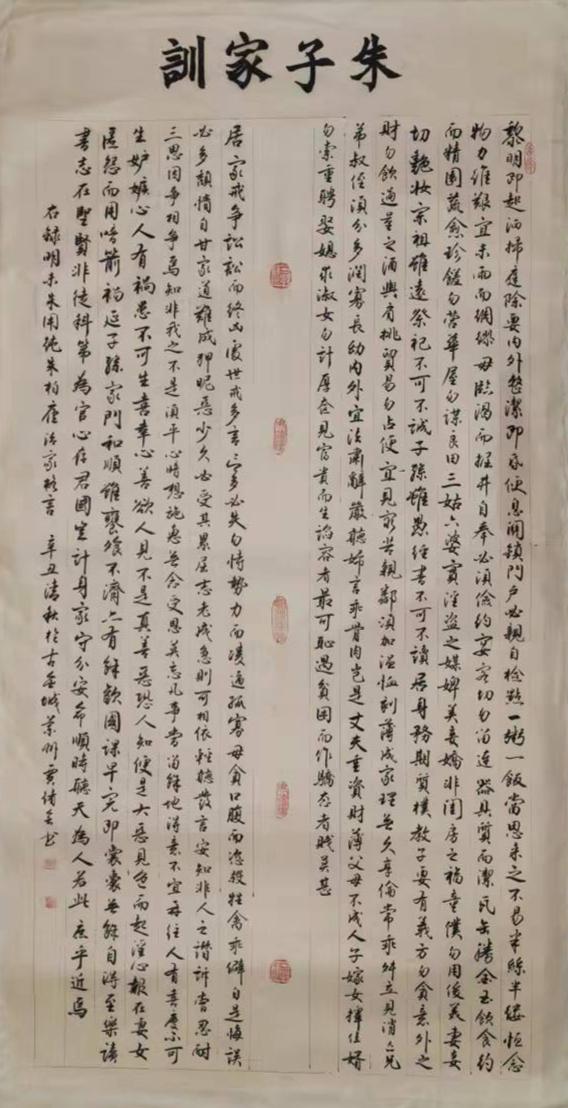 朱子家訓
黎明即起洒掃庭除要內外整潔即昏便息關鎖門戶必親自檢點一粥一飯當思来之不易半絲半縷恒念
物力維艱宜未雨而綢繆毋臨渴而掘井自奉必須儉約宴客切勿留連器具質而潔瓦缶勝金玉飲食約
而精園蔬愈珍饈勿營華屋勿謀良田三姑六婆實淫盜之媒婢美妾嬌非閨房之福童僕勿用俊美妻妾
切艷妝宗祖雖遠祭祀不可不誠子孫雖愚經書不可不讀居身務期質樸教子要有義方勿貪意外之
財勿飲過量之酒與肩挑貿易勿占便宜見窮苦親鄰須加溫恤刻薄成家理無久享倫常乖舛立見消亡兄
弟叔侄須分多潤寡長幼內外宜法肅辭嚴聽婦言乖骨肉豈是丈夫重資財薄父母不成人子嫁女擇佳婿
勿索重聘娶媳求淑女勿計厚奩見富貴而生諂容者最可恥遇貧困而作驕態者賤莫甚
居家戒争訟訟而終凶處世戒多言言多必失勿恃勢力而凌逼孤寡毋貪口腹而恣殺牲禽乖僻自是悔誤
必多頹惰自甘家道難成狎昵惡少久必受其累屈志老成急則可相依輕聽發言安知非人之譖訴當忍耐
三思因争相争焉知非我之不是須平心暗想施惠無念受恩莫忘凡事當留餘地得意不宜再往人有喜慶不可
生妒嫉心人有禍患不可生喜幸心善欲人見不是真善惡恐人知便是大惡見色而起淫心報在妻女
匿怨而用暗箭禍延子孫家門和順雖饔飧不濟亦有餘歡國課早完即囊橐無餘自得至樂讀
書志在聖賢非徒科第為官心存君國豈計身家守分安命順時聽天為人若此庶乎近焉
右錄明末朱用純朱柏廬治家格言 辛丑清秋於古金城蘭州 書